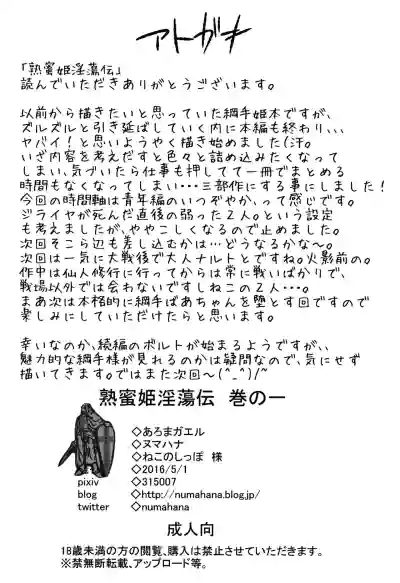 アトガキ
「熟蜜姫淫蕩伝」
読んでいただきありがとうございます。
以前から描きたいと思っていた綱手姫本ですが、
ズルズルと引き延ばしていく内に本編も終わり、、、
ヤバイ!と思いようやく描き始めました(汗。
いざ内容を考えだすと色々と詰め込みたくなって
しまい、気づいたら仕事も押してて一冊でまとめる
時間もなくなってしまい・・・三部作にする事にしました!
今回の時間軸は青年編のいつぞやか、って感じです。
ジライヤが死んだ直後の弱った2人。という設定
も考えましたが、ややこしくなるので止めました。
次回そこら辺も差し込むかは…どうなるかな~。
次回は一気に大戦後で大人ナルトとですね。火影前の。
作中は仙人修行に行ってからは常に戦いばかりで、
戦場以外では会わないですしねこの2人・・・。
まあ次は本格的に綱手ばあちゃんを堕とす回ですので
楽しみにしていただけたらと思います。
幸いなのか、続編のボルトが始まるようですが、、
魅力的な綱手様が見れるのかは疑問なので、気にせず
描いてきます。ではまた次回~(^_^)/~
熟蜜姫淫蕩伝 巻の一
◇あろまガエル
◇ヌマハナ
◇ねこのしっぽ 様
◇2016/5/1
pixiv ◇315007
blog ◇http://numahana.blog.jp/
twitter ◇numahana
成人向
18歳未満の方の閲覧、購入は禁止させていただきます。
※禁無断転載、アップロード等。